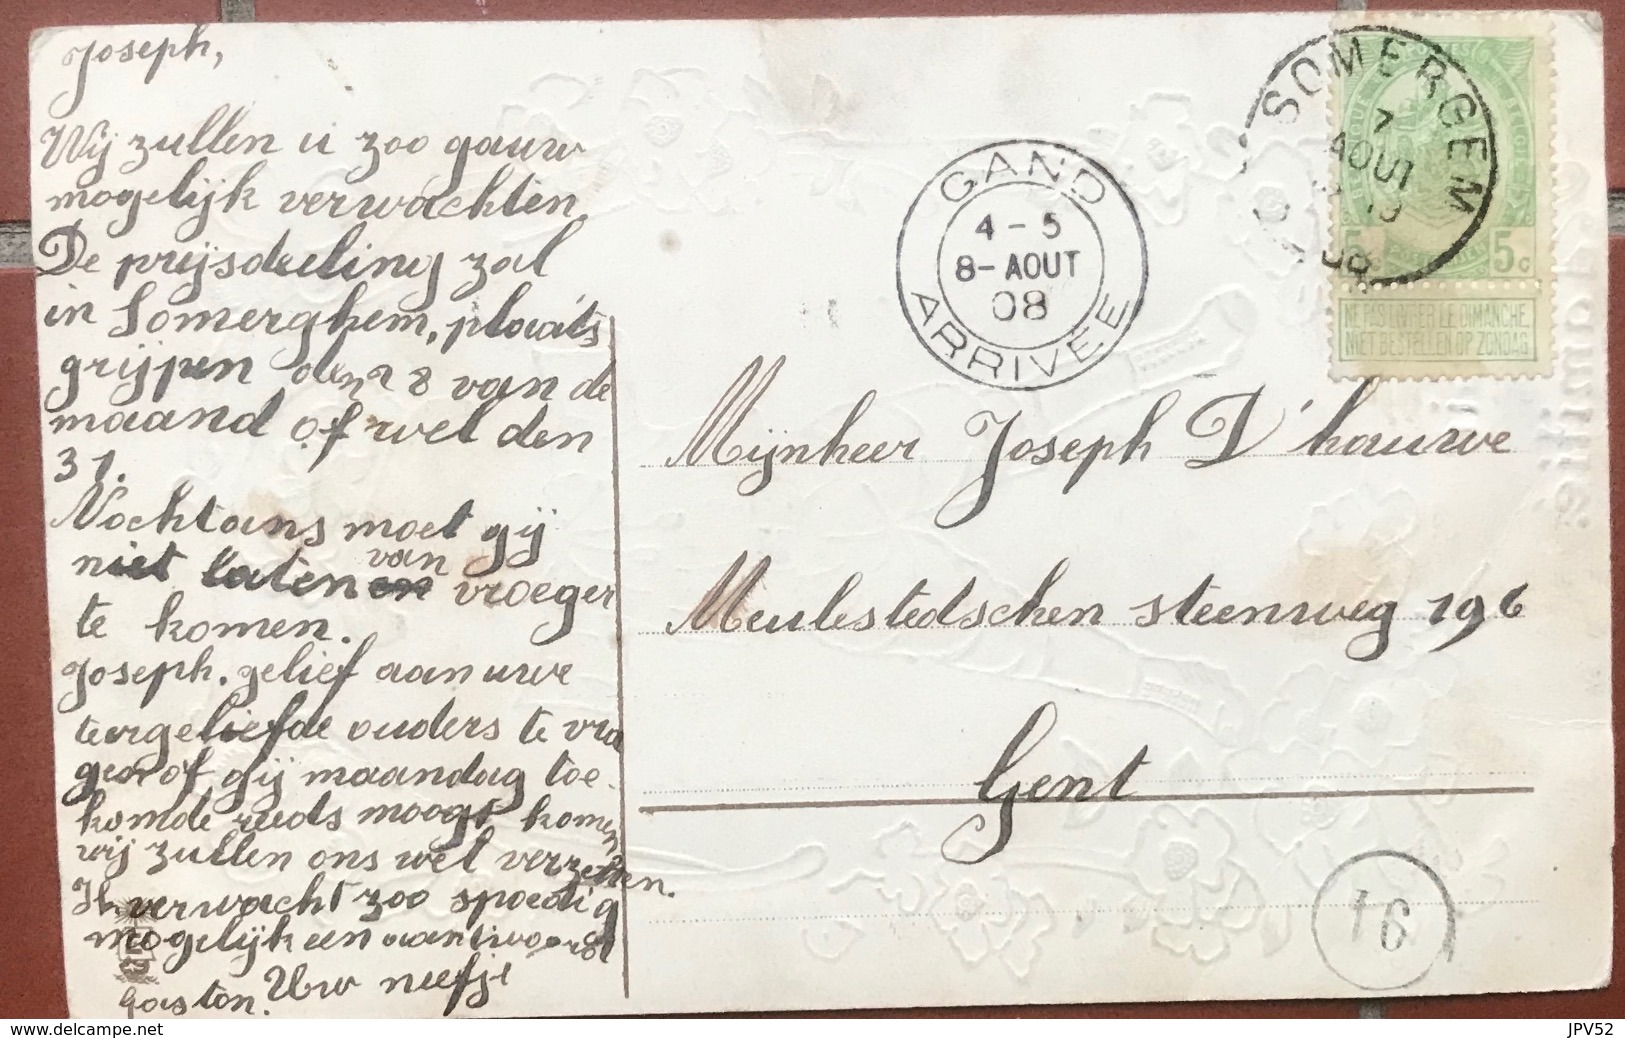 Joseph,
Wij zullen u zoo gauw
mogelijk verwachten.
De prijsdeeling zal
in Somerghem, plaats
grijpen den 28 van de
maand of wel den
31.
Nochtans moet gij
niet laten van vroeger
te komen.
Joseph. gelief aan uwe
teergeliefde ouders te vra
gen of gij maandag toe-
komde reeds moogt komen
wij zullen ons wel verzetten.
Ik verwacht zoo spoedig
mogelijk een antwoord
Gaston. Uw neefje
SOMERGEM
7
AOUT
08
GAND
4-5
8-AOUT
08
ARRIVEE
POSTES
BELGIQUE
BELGIE
5 5c
NE PAS LIVRER LE DIMANCHE
NIET BESTELLEN OP ZONDAG
Mijnheer Joseph D'hauwe
Meulestedschen steenweg 196
Gent
16
delcampe.net
JPV52